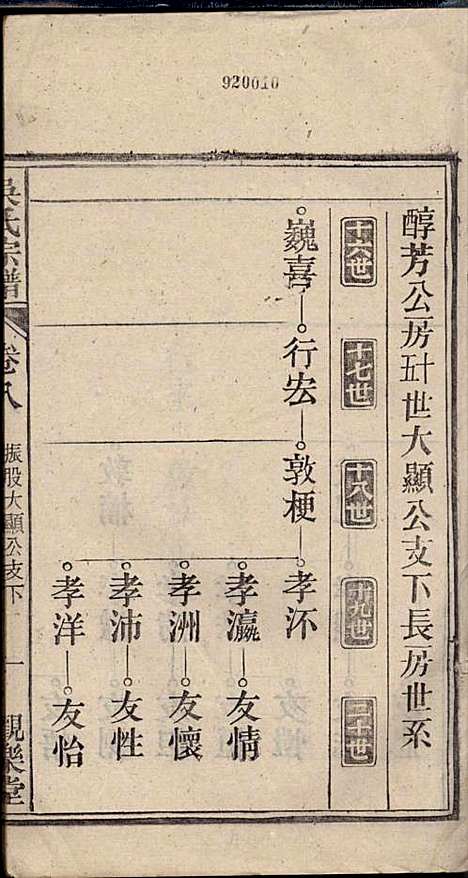 920010
醇芳公房五十世大顯公支下長房世系
十六世
十七世
十八世
十九世
二十世
巍喜
行宏
敦梗
孝沶
孝瀛
友情
孝洲
友懷
孝沛
友性
孝洋
友怡
吳氏宗譜
卷八
振股大顯公支下
一
觀樂堂